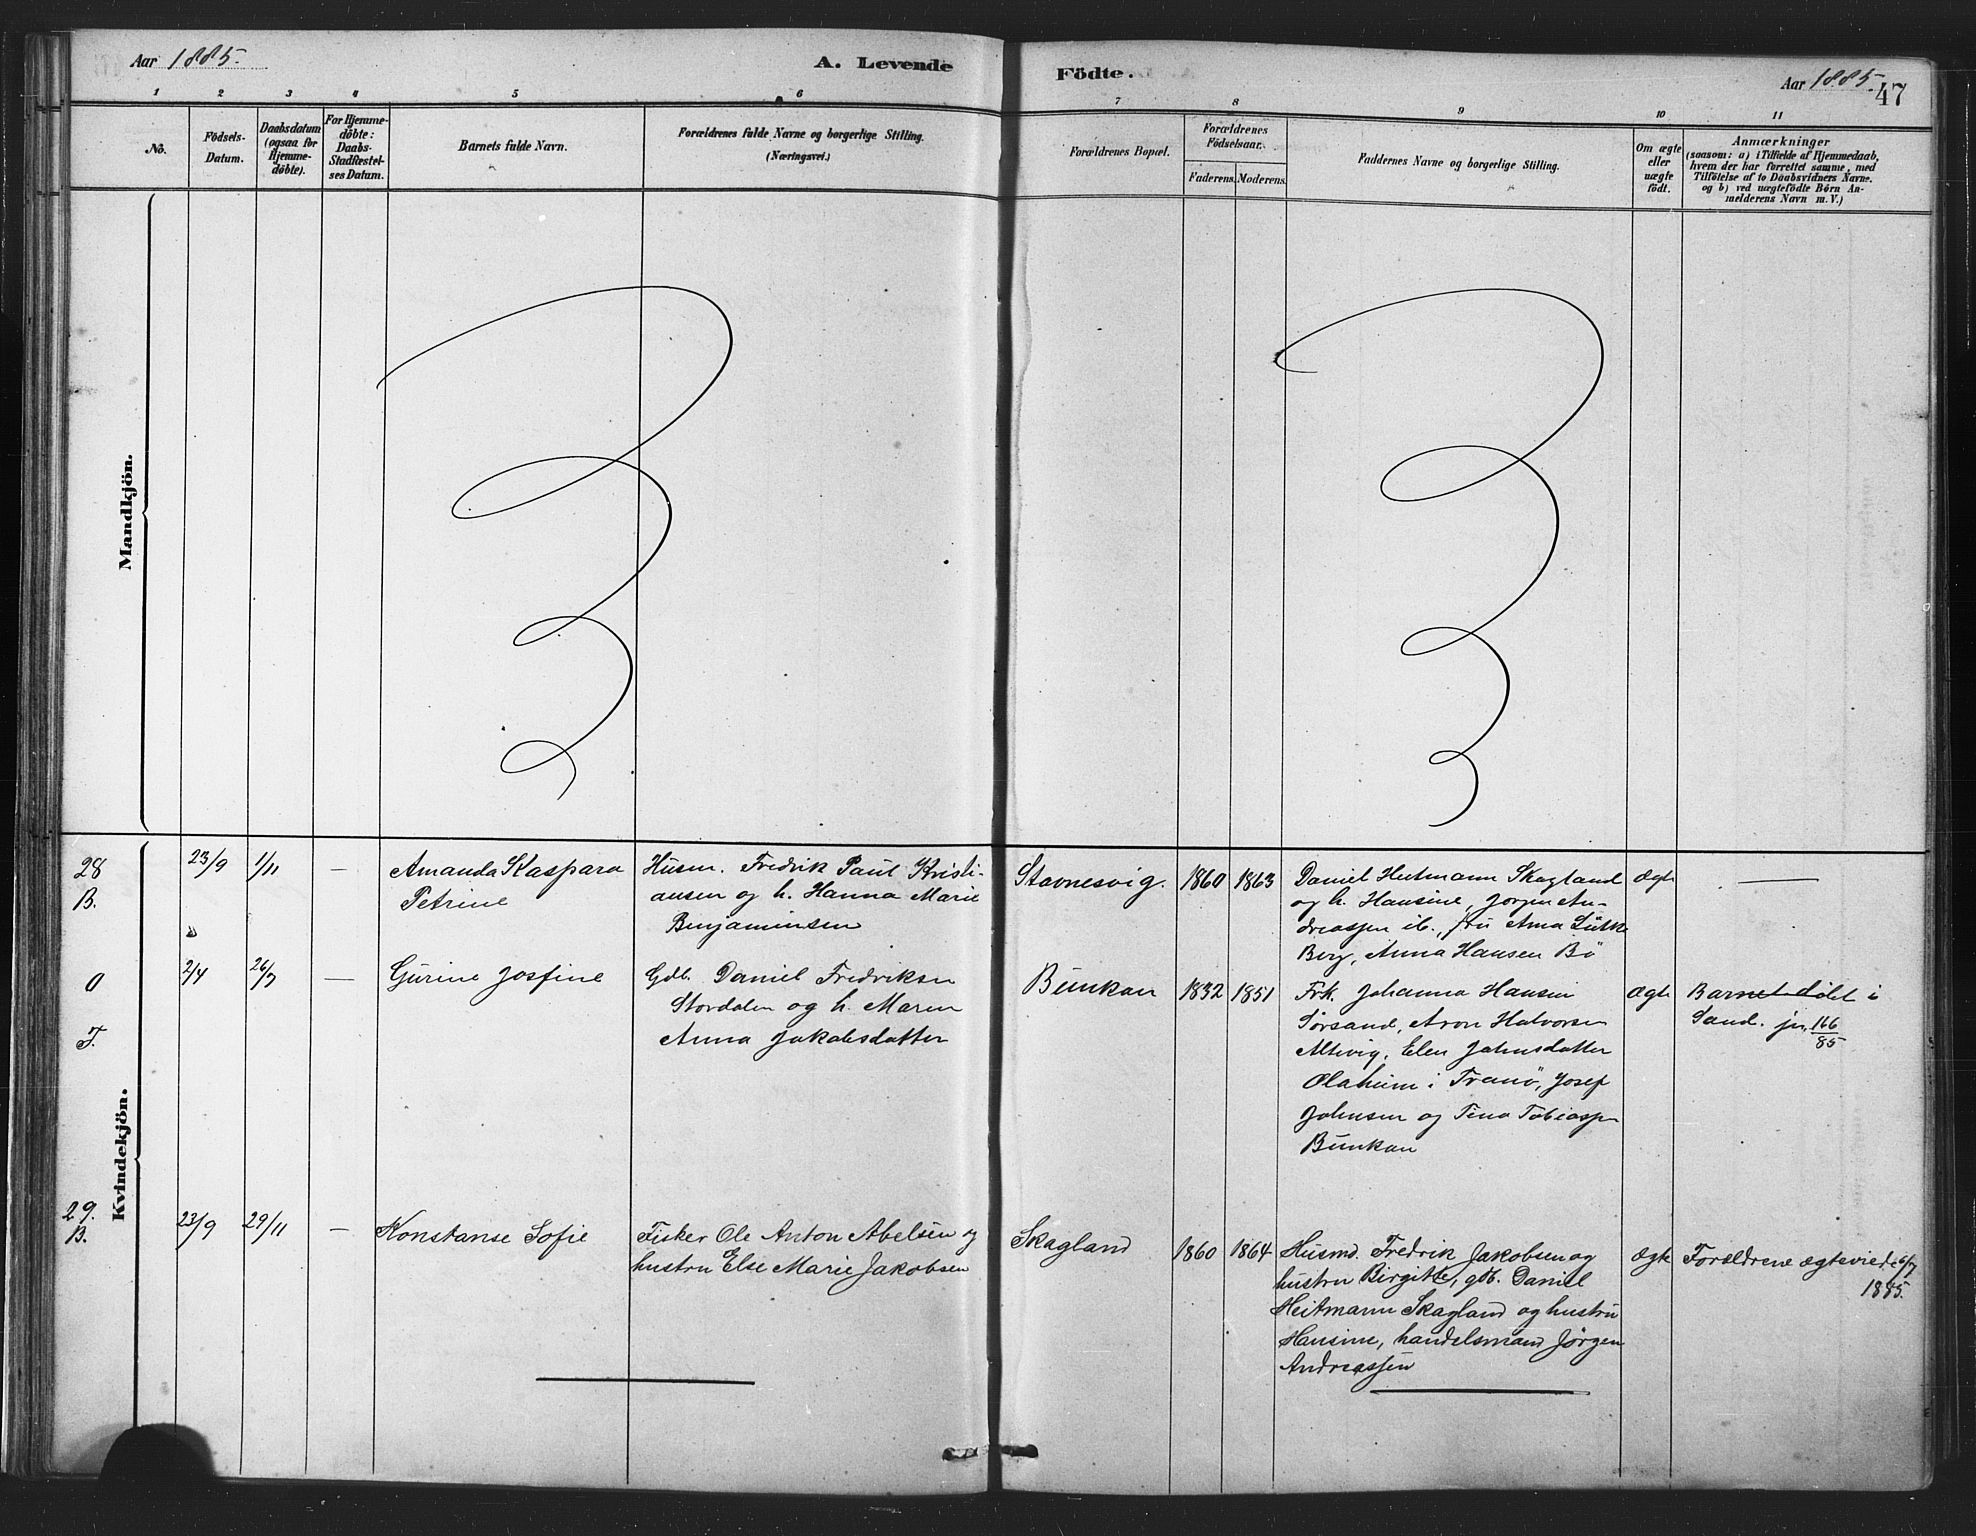 Aar 1885.
A. Levende
Födte.
Aar 1885.
47
1 2 3 4 5 6 7 8 9 10 11
No.
Födsels-
Datum.
Daabsdatum
(ogsaa for
Hjemme-
döbte).
For Hjemme-
döbte:
Daabs-
Stadfæstel-
ses Datum.
Barnets fulde Navn.
Forældrenes fulde Navne og borgerlige Stilling.
(Næringsvei.)
Forældrenes Bopæl.
Forældrenes
Födselsaar.
Faderens. Moderens.
Faddernes Navne og borgerlige Stilling.
Om ægte
eller
uægte
födt.
Anmærkninger
(saasom: a) i Tilfælde af Hjemmedaab,
hvem der har forrettet samme, med
Tilföielse af to Daabsvidners Navne.
og b) ved uægtefödte Börn An-
melderens Navn m. V.)
Mandkjön.
Kvindekjön.
28
B.
23/9
1/11
—
Amanda Kaspara
Petrine
Husm. Fredrik Paul Kristi-
ansen og h. Hanna Marie
Benjaminsen
Stavnesvig.
1860
1863
Daniel Heitmann Skagland
og h. Hansine, Jörgen An-
dreassen ib., fru Anna
Berg, Anna Hansen Bö
ægte
—
0
F.
2/4
26/7
—
Gurine Josfine
Gdb. Daniel Fredriksen
Stordalen og h. Maren
Anna Jakobsdatter
Bunkan
1832
1851
Frk. Johanna Hansen
Sørsand, Aron Halvorsen
Altevig, Elen Johnsdatter
Olaheim i Tranö, Josef
Johnsen og Tina Tobiassen
Bunkan
ægte
Barnet döbt i
Sand. jn. 166/85
29.
B.
23/9
29/11
—
Konstanse Sofie
Fisker Ole Anton Abelsen og
hustru Else Marie Jakobsen
Skagland
1860
1864
Husmd. Fredrik Jakobsen og
hustru Birgitte, gdb. Daniel
Heitmann Skagland og hustru
Hansine, handelsmand Jörgen
Andreassen
ægte
Forældrene ægteviede 6/7
1885.